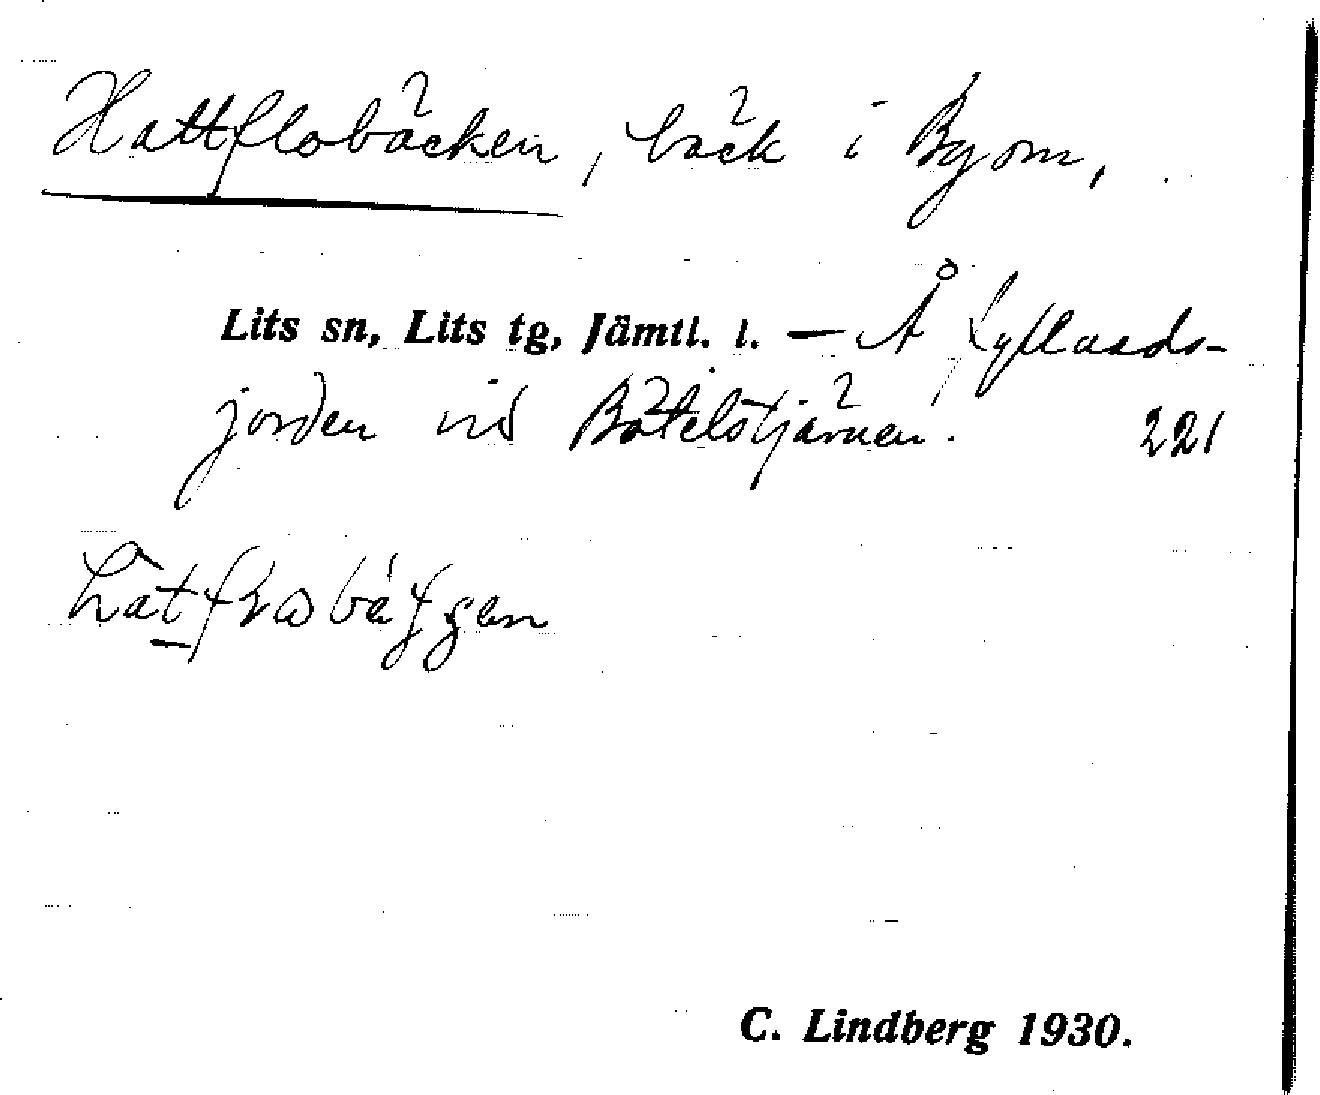 Hattflobäcken, bäck i Byom,
Lits sn, Lits tg, Jämtl. l. — Å Kyflands-
jorden vid Båtelstjärnen. 221
C. Lindberg 1930.